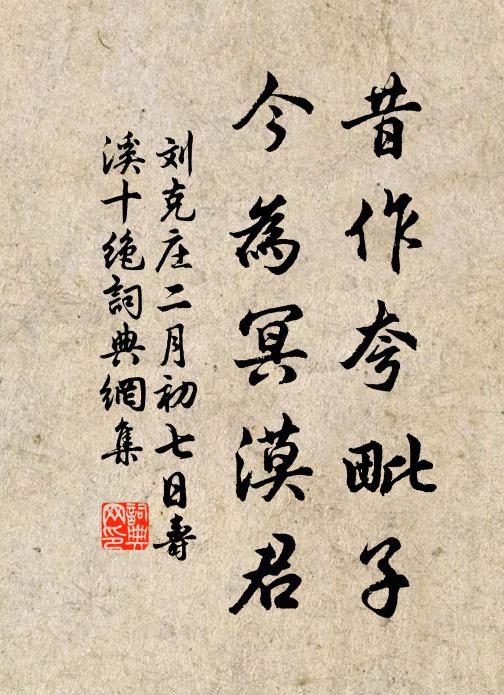 昔作夸毗子
今為冥漠君
刘克庄二月初七日壽
溪十绝詞典網集
詞典
网印